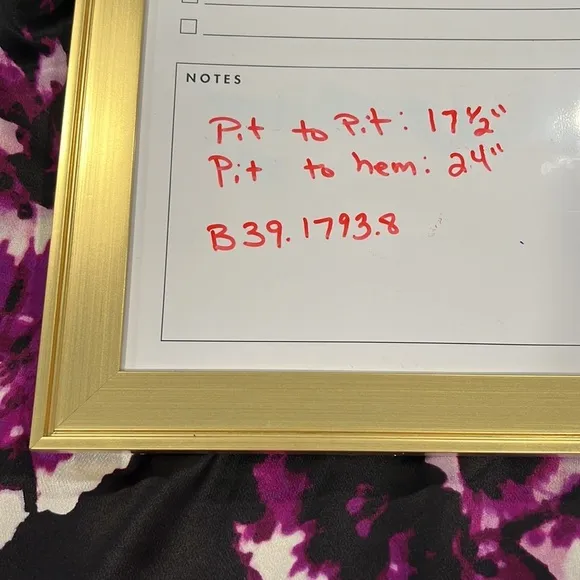 NOTES
Pit to Pit: 17 1/2"
Pit to hem: 24"
B39.1793.8